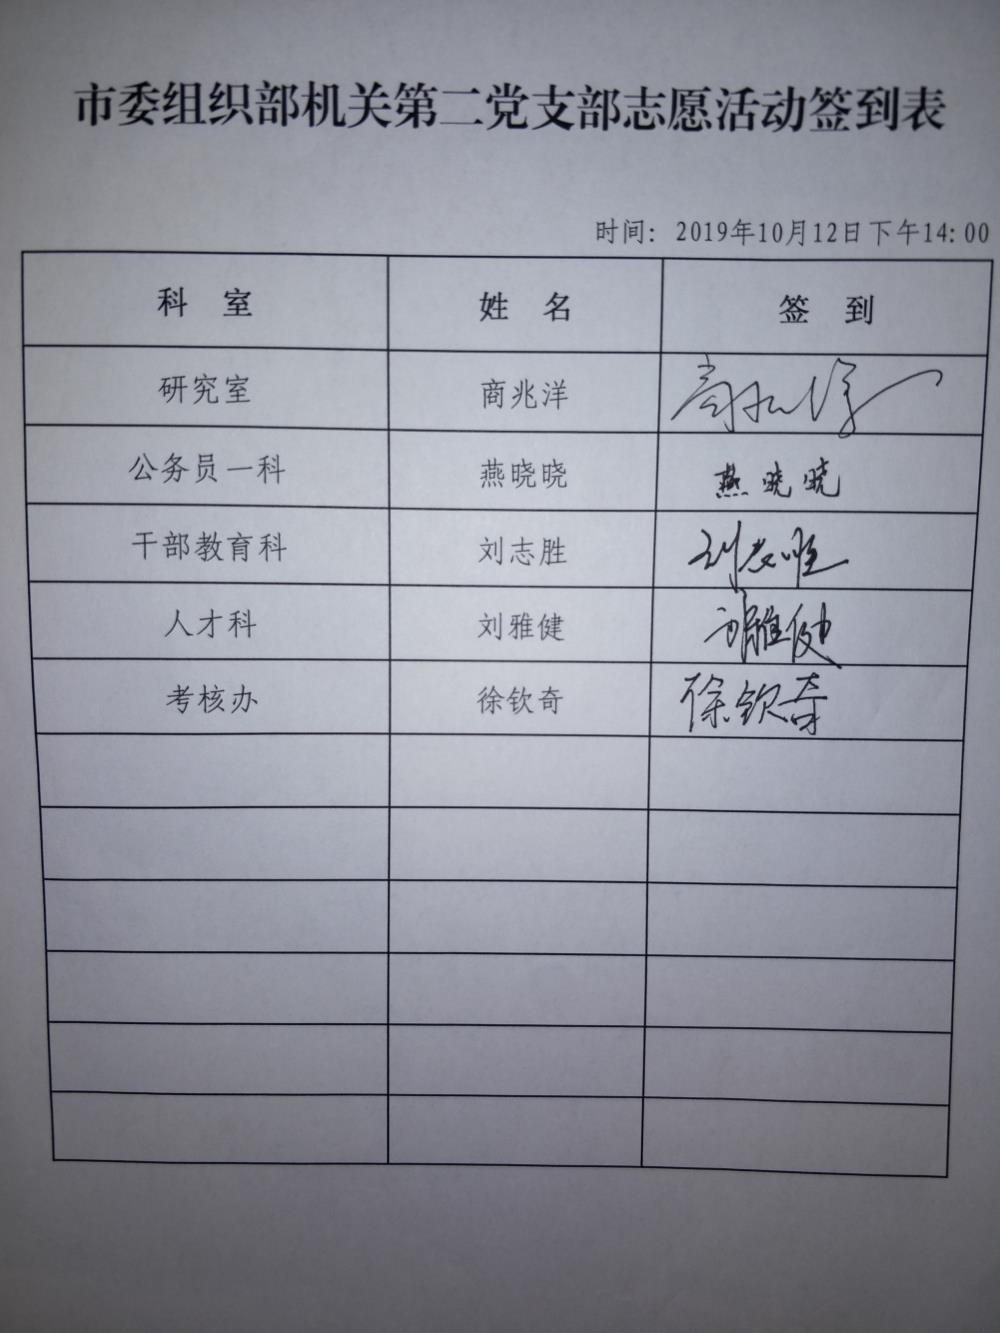 市委组织部机关第二党支部志愿活动签到表
时间：2019年10月12日下午14：00
科 室 姓 名 签 到
研究室 商兆洋 商兆洋
公务员一科 燕晓晓 燕晓晓
干部教育科 刘志胜 刘志胜
人才科 刘雅健 刘雅健
考核办 徐钦奇 徐钦奇